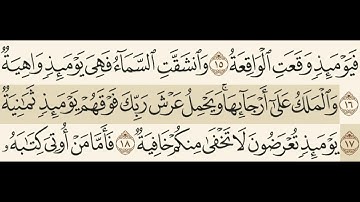 فَيَوْمَئِذٍ وَقَعَتِ ٱلْوَاقِعَةُ ١٥ وَٱنشَقَّتِ ٱلسَّمَآءُ فَهِىَ يَوْمَئِذٍ وَاهِيَةٌ
١٦ وَٱلْمَلَكُ عَلَىٰٓ أَرْجَآئِهَا ۚ وَيَحْمِلُ عَرْشَ رَبِّكَ فَوْقَهُمْ يَوْمَئِذٍ ثَمَٰنِيَةٌ
١٧ يَوْمَئِذٍ تُعْرَضُونَ لَا تَخْفَىٰ مِنكُمْ خَافِيَةٌ ١٨ فَأَمَّا مَنْ أُوتِىَ كِتَٰبَهُۥ